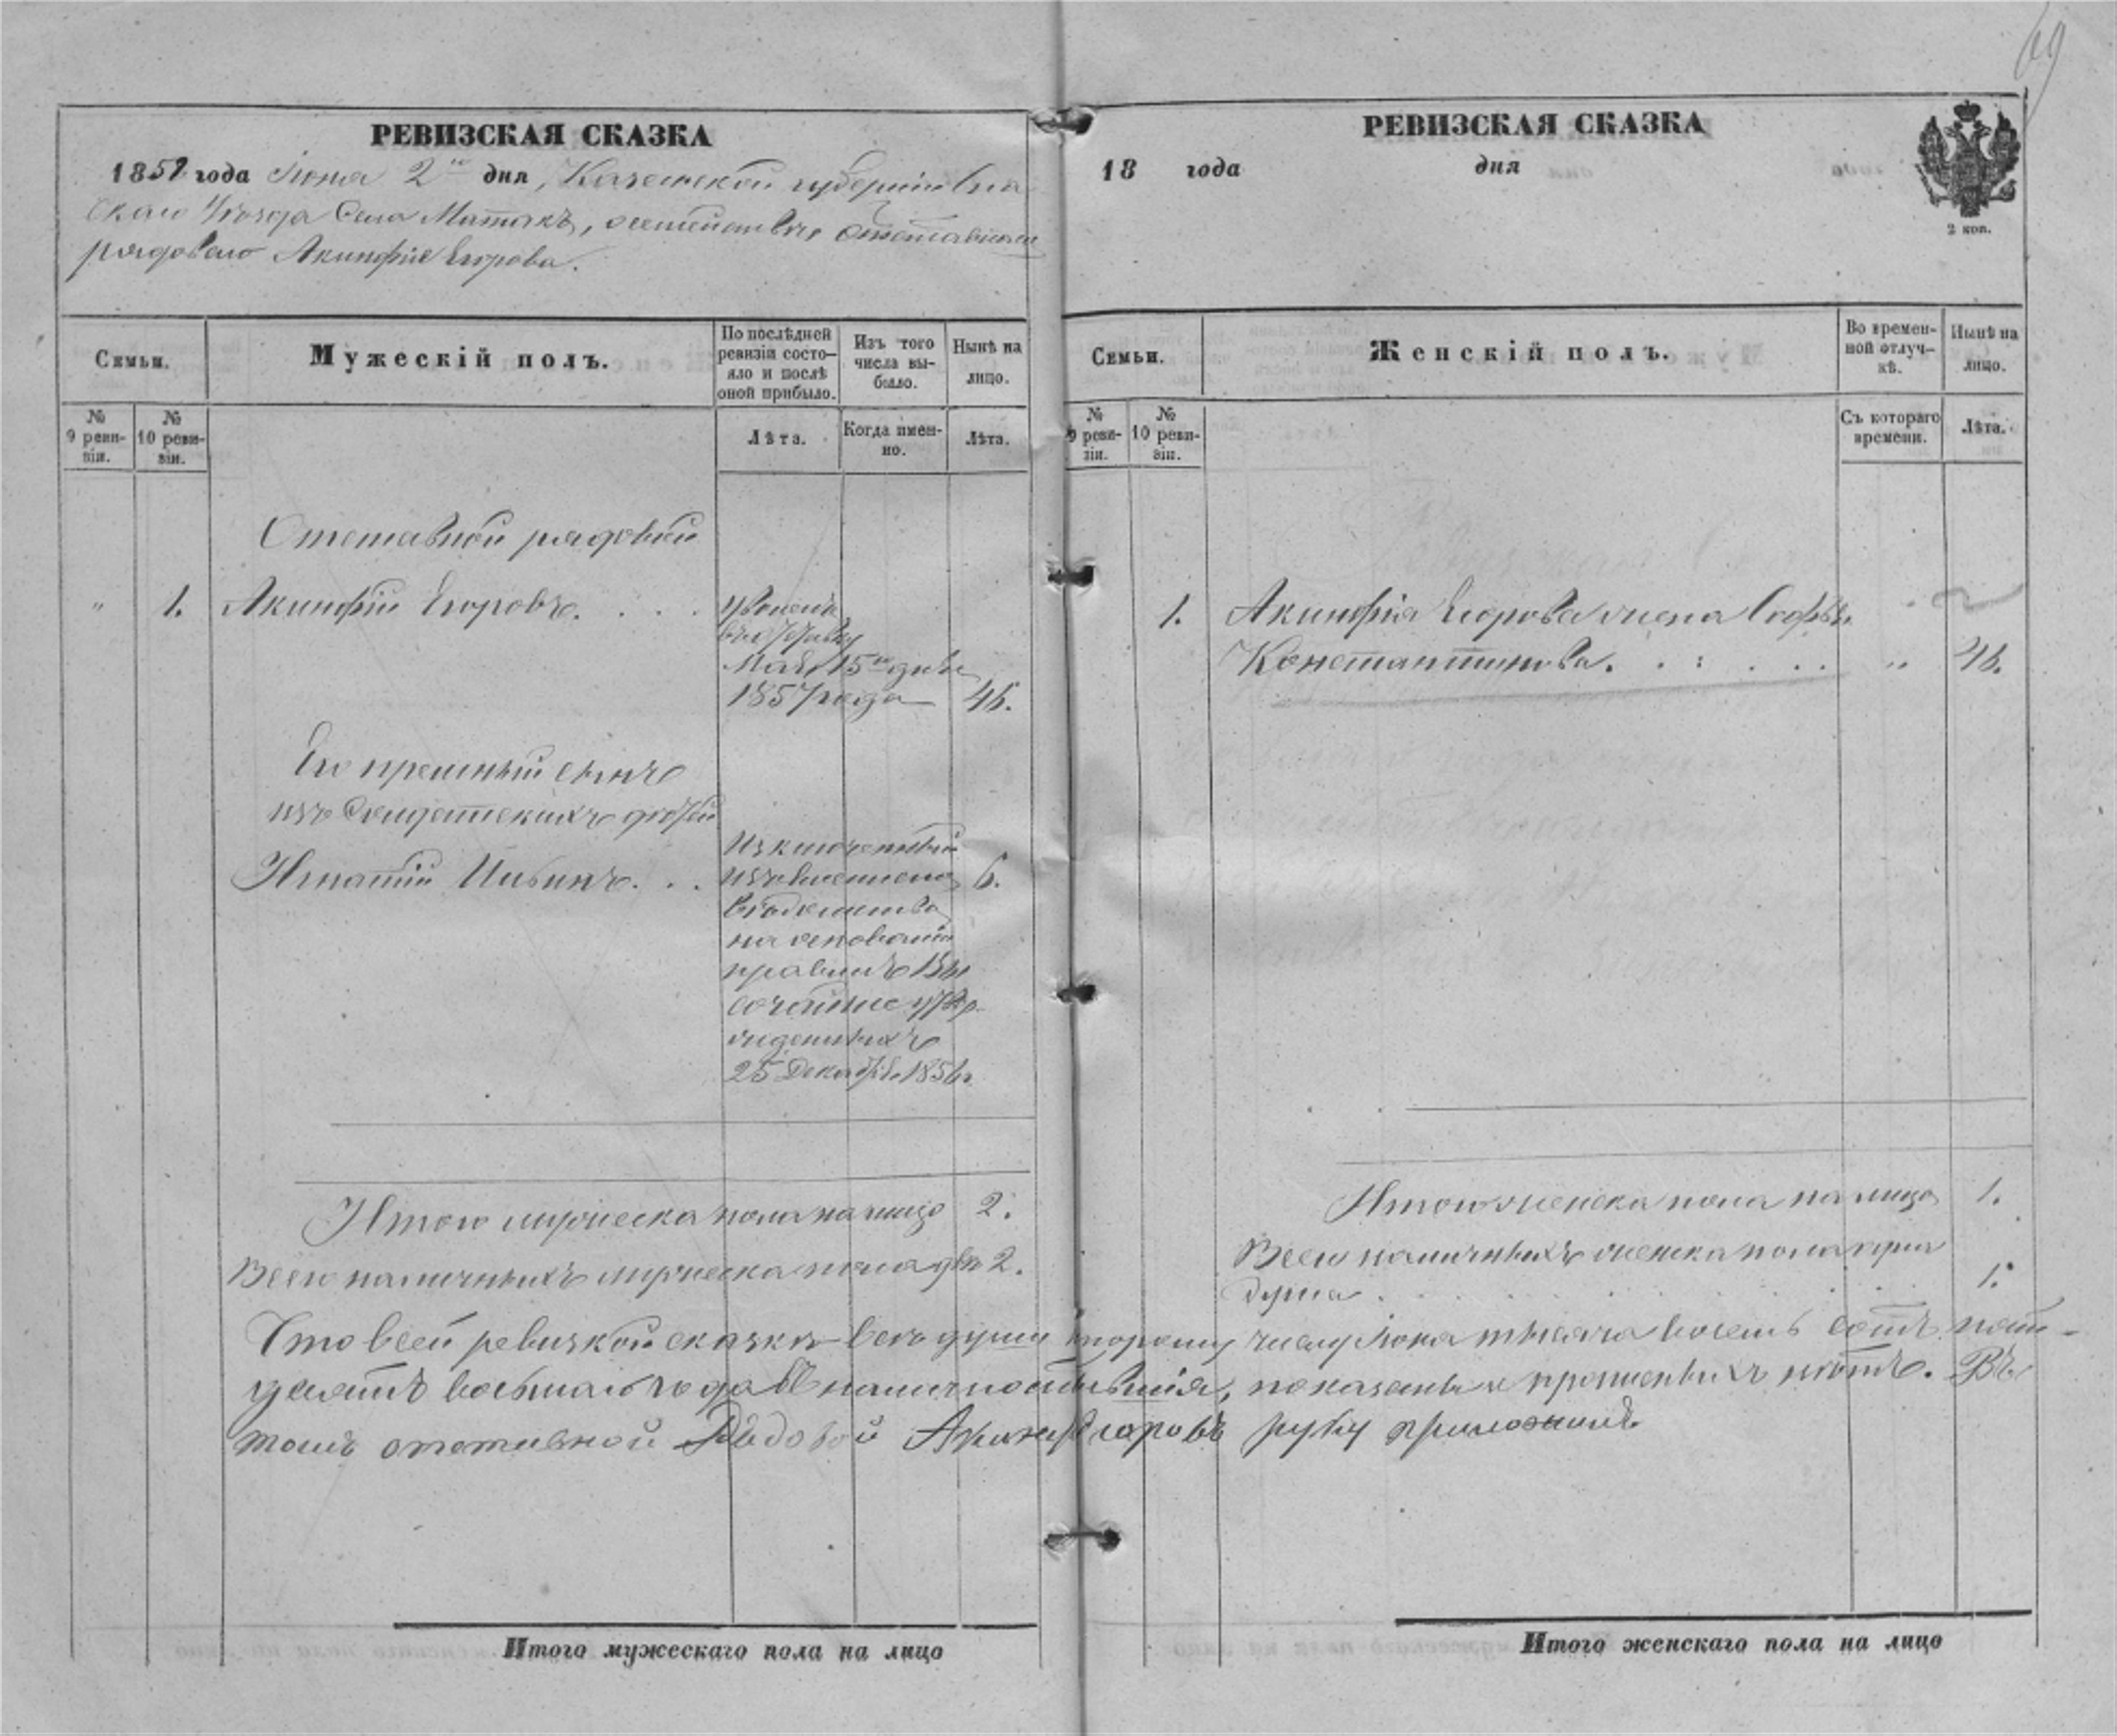 69
РЕВИЗСКАЯ СКАЗКА
1858 года Июня 2го дня, Казанской губернiи Спа-
скаго Уѣзда Села Матакъ, семейства отставнаго
рядоваго Акинфiя Егорова.
Семьи.
Мужескiй полъ.
По послѣдней ревизiи состо-яло и послѣ оной прибыло.
Изъ того числа вы-было.
Нынѣ на лицо.
№ 9 реви-зiи.
№ 10 реви-зiи.
Лѣта.
Когда имен-но.
Лѣта.
Отставной рядовой
" 1. Акинфiй Егоровъ. . . .
уволенъ
въ отставку
Мая 15го дня
1857 года 46.
Его прiемный сынъ
изъ солдатскихъ дѣтей
Игнатiй Ильинъ. . . 6.
Изключенный
изъ военнаго
вѣдомства
на основанiи
правилъ Вы
сочайше утвер
жденныхъ
25 Декабря 1856г.
Итого мужеска пола на лицо 2.
Всего наличныхъ мужеска пола двѣ 2.
РЕВИЗСКАЯ СКАЗКА
18 года дня
2 коп.
Семьи.
Женскiй полъ.
Во времен-ной отлуч-кѣ.
Нынѣ на лицо.
№ 9 реви-зiи.
№ 10 реви-зiи.
Съ котораго времени.
Лѣта.
1. Акинфiя Егорова жена Софья
Константинова. . . . . . " 46.
Итого женска пола на лицо 1.
Всего наличныхъ женска пола одна
душа . . . . 1.
Что въ сей ревизкой сказкѣ всѣ души второму числу Iюня тысяча восемь сотъ пять-
десятъ восьмаго года въ наличности бывшiя, показаны и прописныхъ нѣтъ. Въ
томъ отставной Рядовой Акинф Егоровъ руку приложилъ.
Итого мужескаго пола на лицо
Итого женскаго пола на лицо